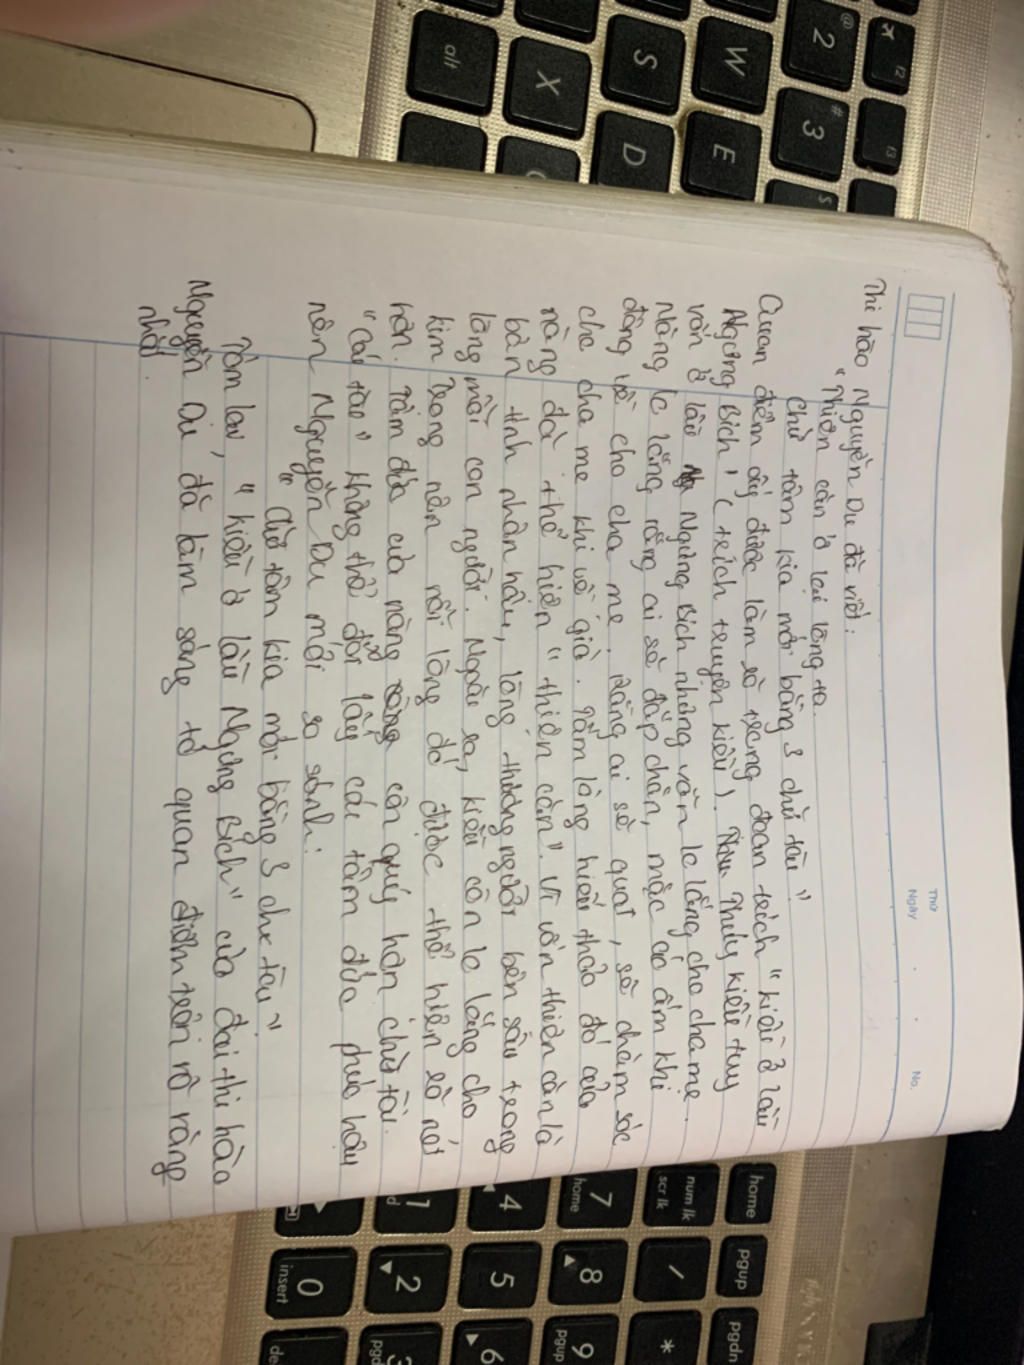 Thứ
Ngày
No.
Thi hào Nguyễn Du đã viết:
"Thiện căn ở lại lòng ta
Chữ tâm kia mới bằng 3 chữ tài"
Quan điểm ấy được làm rõ trong đoạn trích "Kiều ở lầu
Ngưng Bích" (trích truyện kiều). Thuý kiều tuy
vẫn ở lầu Ngưng Bích nhưng vẫn lo lắng cho cha mẹ.
Nàng lo lắng rằng ai sẽ đắp chăn, mặc áo ấm khi
đông về cho cha mẹ. Rằng ai sẽ quạt, sẽ chăm sóc
cho cha mẹ khi về già. Tấm lòng hiếu thảo đó của
nàng đã thể hiện "thiện căn". Vì vốn thiện căn là
bản tính nhân hậu, lòng thương người bên sâu trong
lòng mỗi con người. Ngoài ra, kiều còn lo lắng cho
kim Trọng nên nỗi lòng đó được thể hiện rõ nét
hơn. Tâm đức của nàng còn quý hơn chữ tài.
"Cái tào" không thể đổi lấy cái tâm đức phúc hậu
nên Nguyễn Du mới so sánh:
"Chữ tâm kia mới bằng 3 chữ tài"
Tóm lại, "kiều ở lầu Ngưng Bích" của đại thi hào
Nguyễn Du đã làm sáng tỏ quan điểm trên rõ ràng
nhất.
alt
X
S
D
W
E
@
2
#
3
$
f2
f3
home
pgup
pgdn
num lk
scr lk
/
*
7
home
8
9
pgup
4
5
6
1
2
3
0
insert